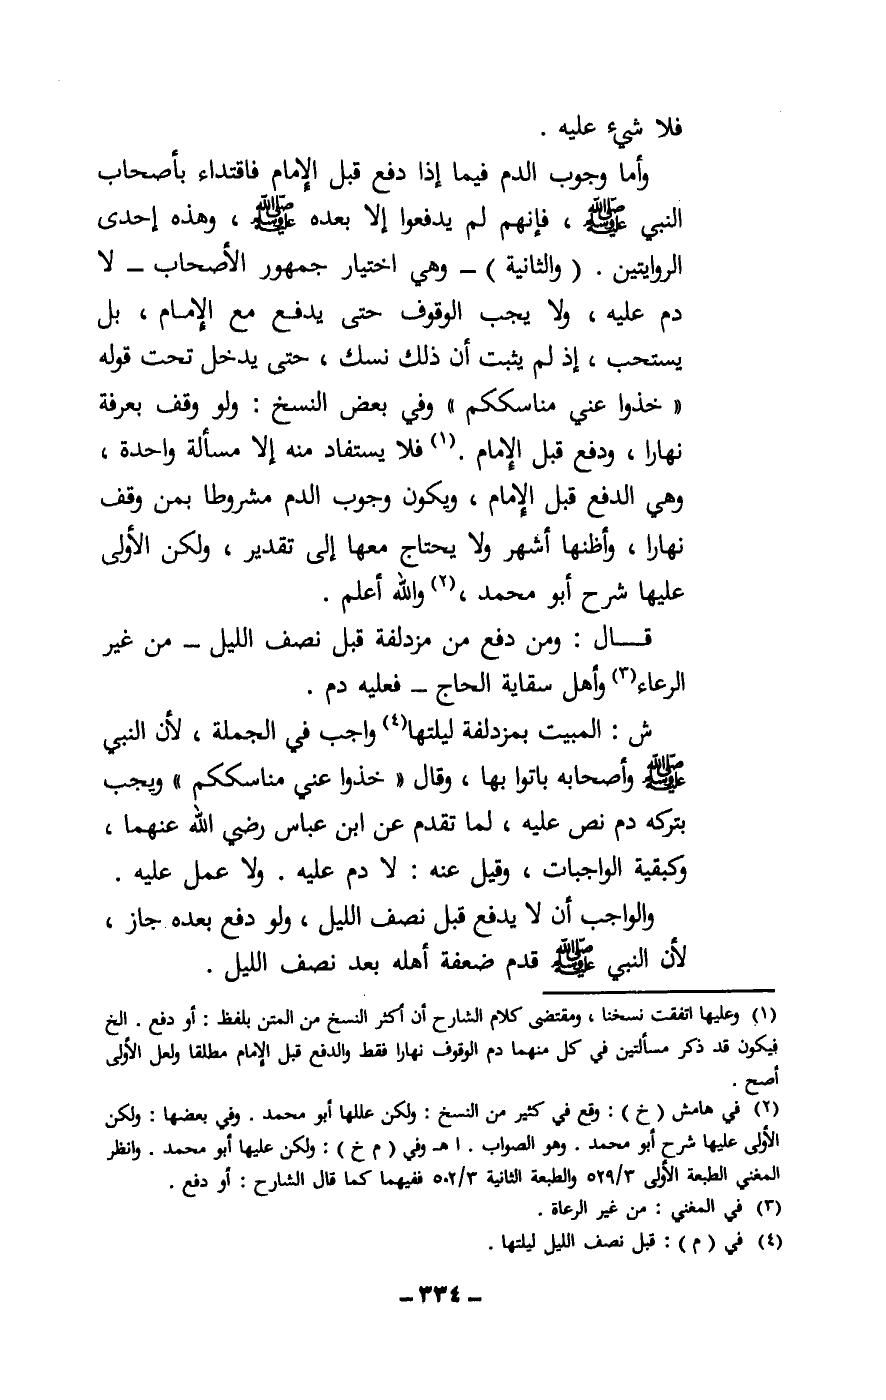 فلا شيء عليه .
وأما وجوب الدم فيما إذا دفع قبل الإمام فاقتداء بأصحاب
النبي ﷺ ، فإنهم لم يدفعوا إلا بعده ﷺ ، وهذه إحدى
الروايتين . ( والثانية ) – وهي اختيار جمهور الأصحاب – لا
دم عليه ، ولا يجب الوقوف حتى يدفع مع الإمام ، بل
يستحب ، إذ لم يثبت أن ذلك نسك ، حتى يدخل تحت قوله
« خذوا عني مناسككم » وفي بعض النسخ : ولو وقف بعرفة
نهارا ، ودفع قبل الإمام .(١) فلا يستفاد منه إلا مسألة واحدة ،
وهي الدفع قبل الإمام ، ويكون وجوب الدم مشروطا بمن وقف
نهارا ، وأظنها أشهر ولا يحتاج معها إلى تقدير ، ولكن الأولى
عليها شرح أبو محمد ،(٢) والله أعلم .
قـــال : ومن دفع من مزدلفة قبل نصف الليل – من غير
الرعاء(٣) وأهل سقاية الحاج – فعليه دم .
ش : المبيت بمزدلفة ليلتها(٤) واجب في الجملة ، لأن النبي
ﷺ وأصحابه باتوا بها ، وقال « خذوا عني مناسككم » ويجب
بتركه دم نص عليه ، لما تقدم عن ابن عباس رضي الله عنهما ،
وكبقية الواجبات ، وقيل عنه : لا دم عليه . ولا عمل عليه .
والواجب أن لا يدفع قبل نصف الليل ، ولو دفع بعده جاز ،
لأن النبي ﷺ قدم ضعفة أهله بعد نصف الليل .
(١) وعليها اتفقت نسخنا ، ومقتضى كلام الشارح أن أكثر النسخ من المتن بلفظ : أو دفع . الخ
فيكون قد ذكر مسألتين في كل منهما دم الوقوف نهارا فقط والدفع قبل الإمام مطلقا ولعل الأولى
أصح .
(٢) في هامش ( خ ) : وقع في كثير من النسخ : ولكن عللها أبو محمد . وفي بعضها : ولكن
الأولى عليها شرح أبو محمد . وهو الصواب . ا هـ وفي ( م خ ) : ولكن عليها أبو محمد . وانظر
المغني الطبعة الأولى ٥٢٩/٣ والطبعة الثانية ٥٠٢/٣ ففيهما كما قال الشارح : أو دفع .
(٣) في المغني : من غير الرعاة .
(٤) في ( م ) : قبل نصف الليل ليلتها .
– ٣٣٤ –